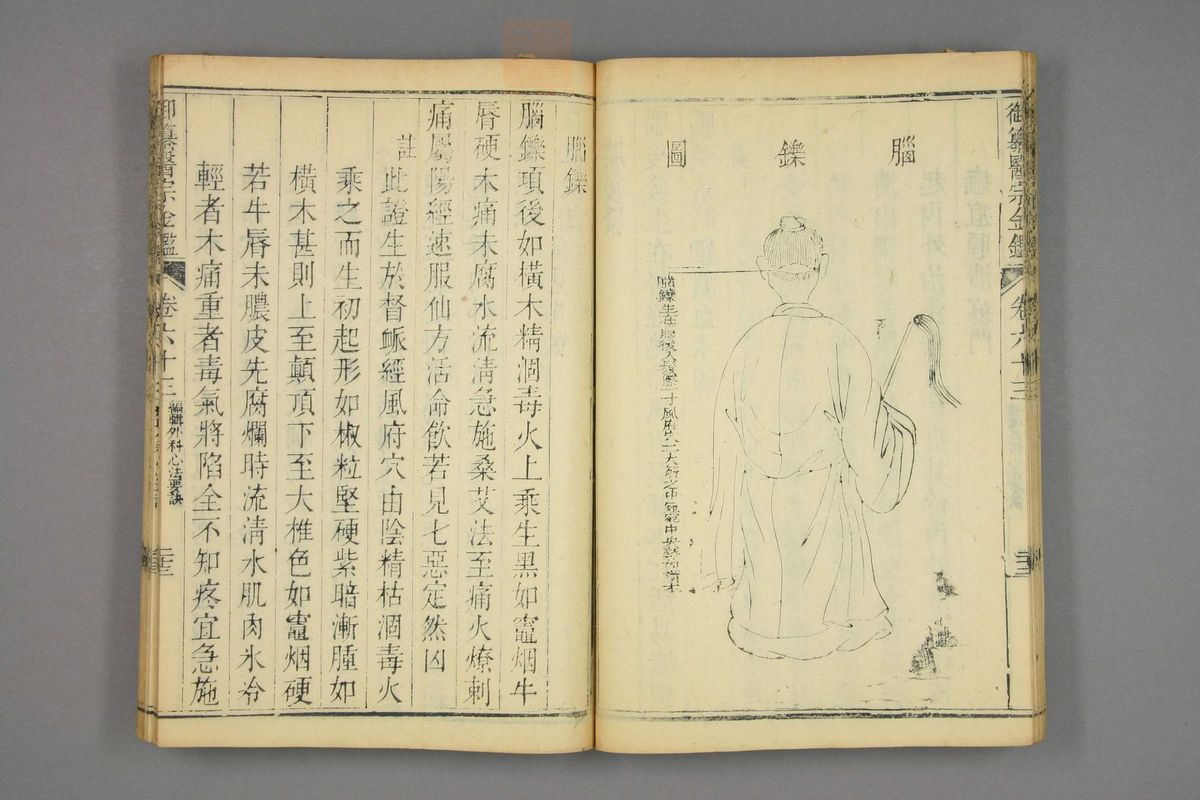 御纂醫宗金鑑
卷六十三
腦鑠圖
腦鑠生在腦後入髮際一寸風府穴二大筋之中宛宛中央
腦鑠
腦鑠項後如橫木精涸毒火上乘生黑如竈烟牛
唇硬木痛未腐水流清急施桑艾法至痛火燎刺
痛屬陽經速服仙方活命飲若見七惡定然凶
註
此證生於督脈經風府穴由陰精枯涸毒火
乘之而生初起形如椒粒堅硬紫暗漸腫如
橫木甚則上至顛頂下至大椎色如竈烟硬
若牛唇未膿皮先腐爛時流清水肌肉冰冷
輕者木痛重者毒氣將陷全不知疼宜急施
御纂醫宗金鑑
卷六十三
編輯外科心法要訣